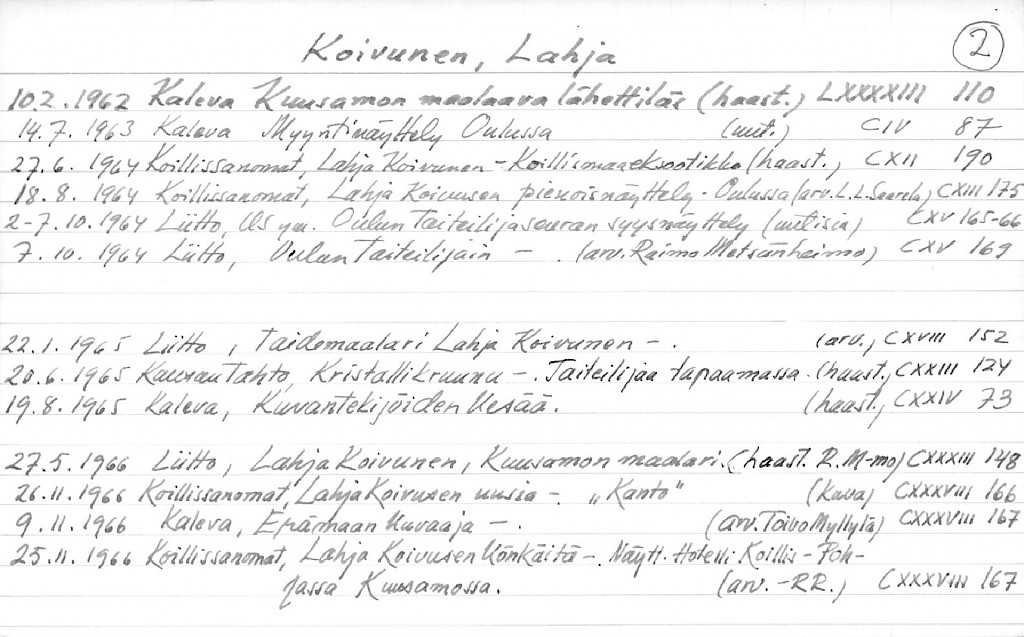 Koivunen, Lahja
2
10.2.1962 Kaleva Kuusamon maalaava lähettiläs (haast.) LXXXXIII 110
14.7.1963 Kaleva Myyntinäyttely Oulussa (uut.) CIV 87
27.6.1964 Koillissanomat, Lahja Koivunen - Koillismaaeksootikko (haast.) CXII 190
18.8.1964 Koillissanomat, Lahja Koivusen pienoisnäyttely - Oulussa (arv. L.L. Saarela) CXIII 175
2-7.10.1964 Liitto, US ym. Oulun Taiteilijaseuran syysnäyttely (uutisia) CXV 165-66
7.10.1964 Liitto, Oulun Taiteilijain - . (arv. Raimo Metsänheimo) CXV 169
22.1.1965 Liitto, Taidemaalari Lahja Koivunen - . (arv.) CXVIII 152
20.6.1965 Kansan Tahto, Kristallikruunu - . Taiteilijaa tapaamassa. (haast.) CXXIII 124
19.8.1965 Kaleva, Kuvantekijöiden kesää. (haast.) CXXIV 73
27.5.1966 Liitto, Lahja Koivunen, Kuusamon maalari. (haast. R. M-mo) CXXXIII 148
26.11.1966 Koillissanomat, Lahja Koivusen uusia - „Kanto" (kuva) CXXXVIII 166
9.11.1966 Kaleva, Erämaan kuvaaja - . (arv. Toivo Myllylä) CXXXVIII 167
25.11.1966 Koillissanomat, Lahja Koivusen könkäitä - . Näytt. Hotelli Koillis - Poh-
jassa Kuusamossa. (arv. - RR.) CXXXVIII 167